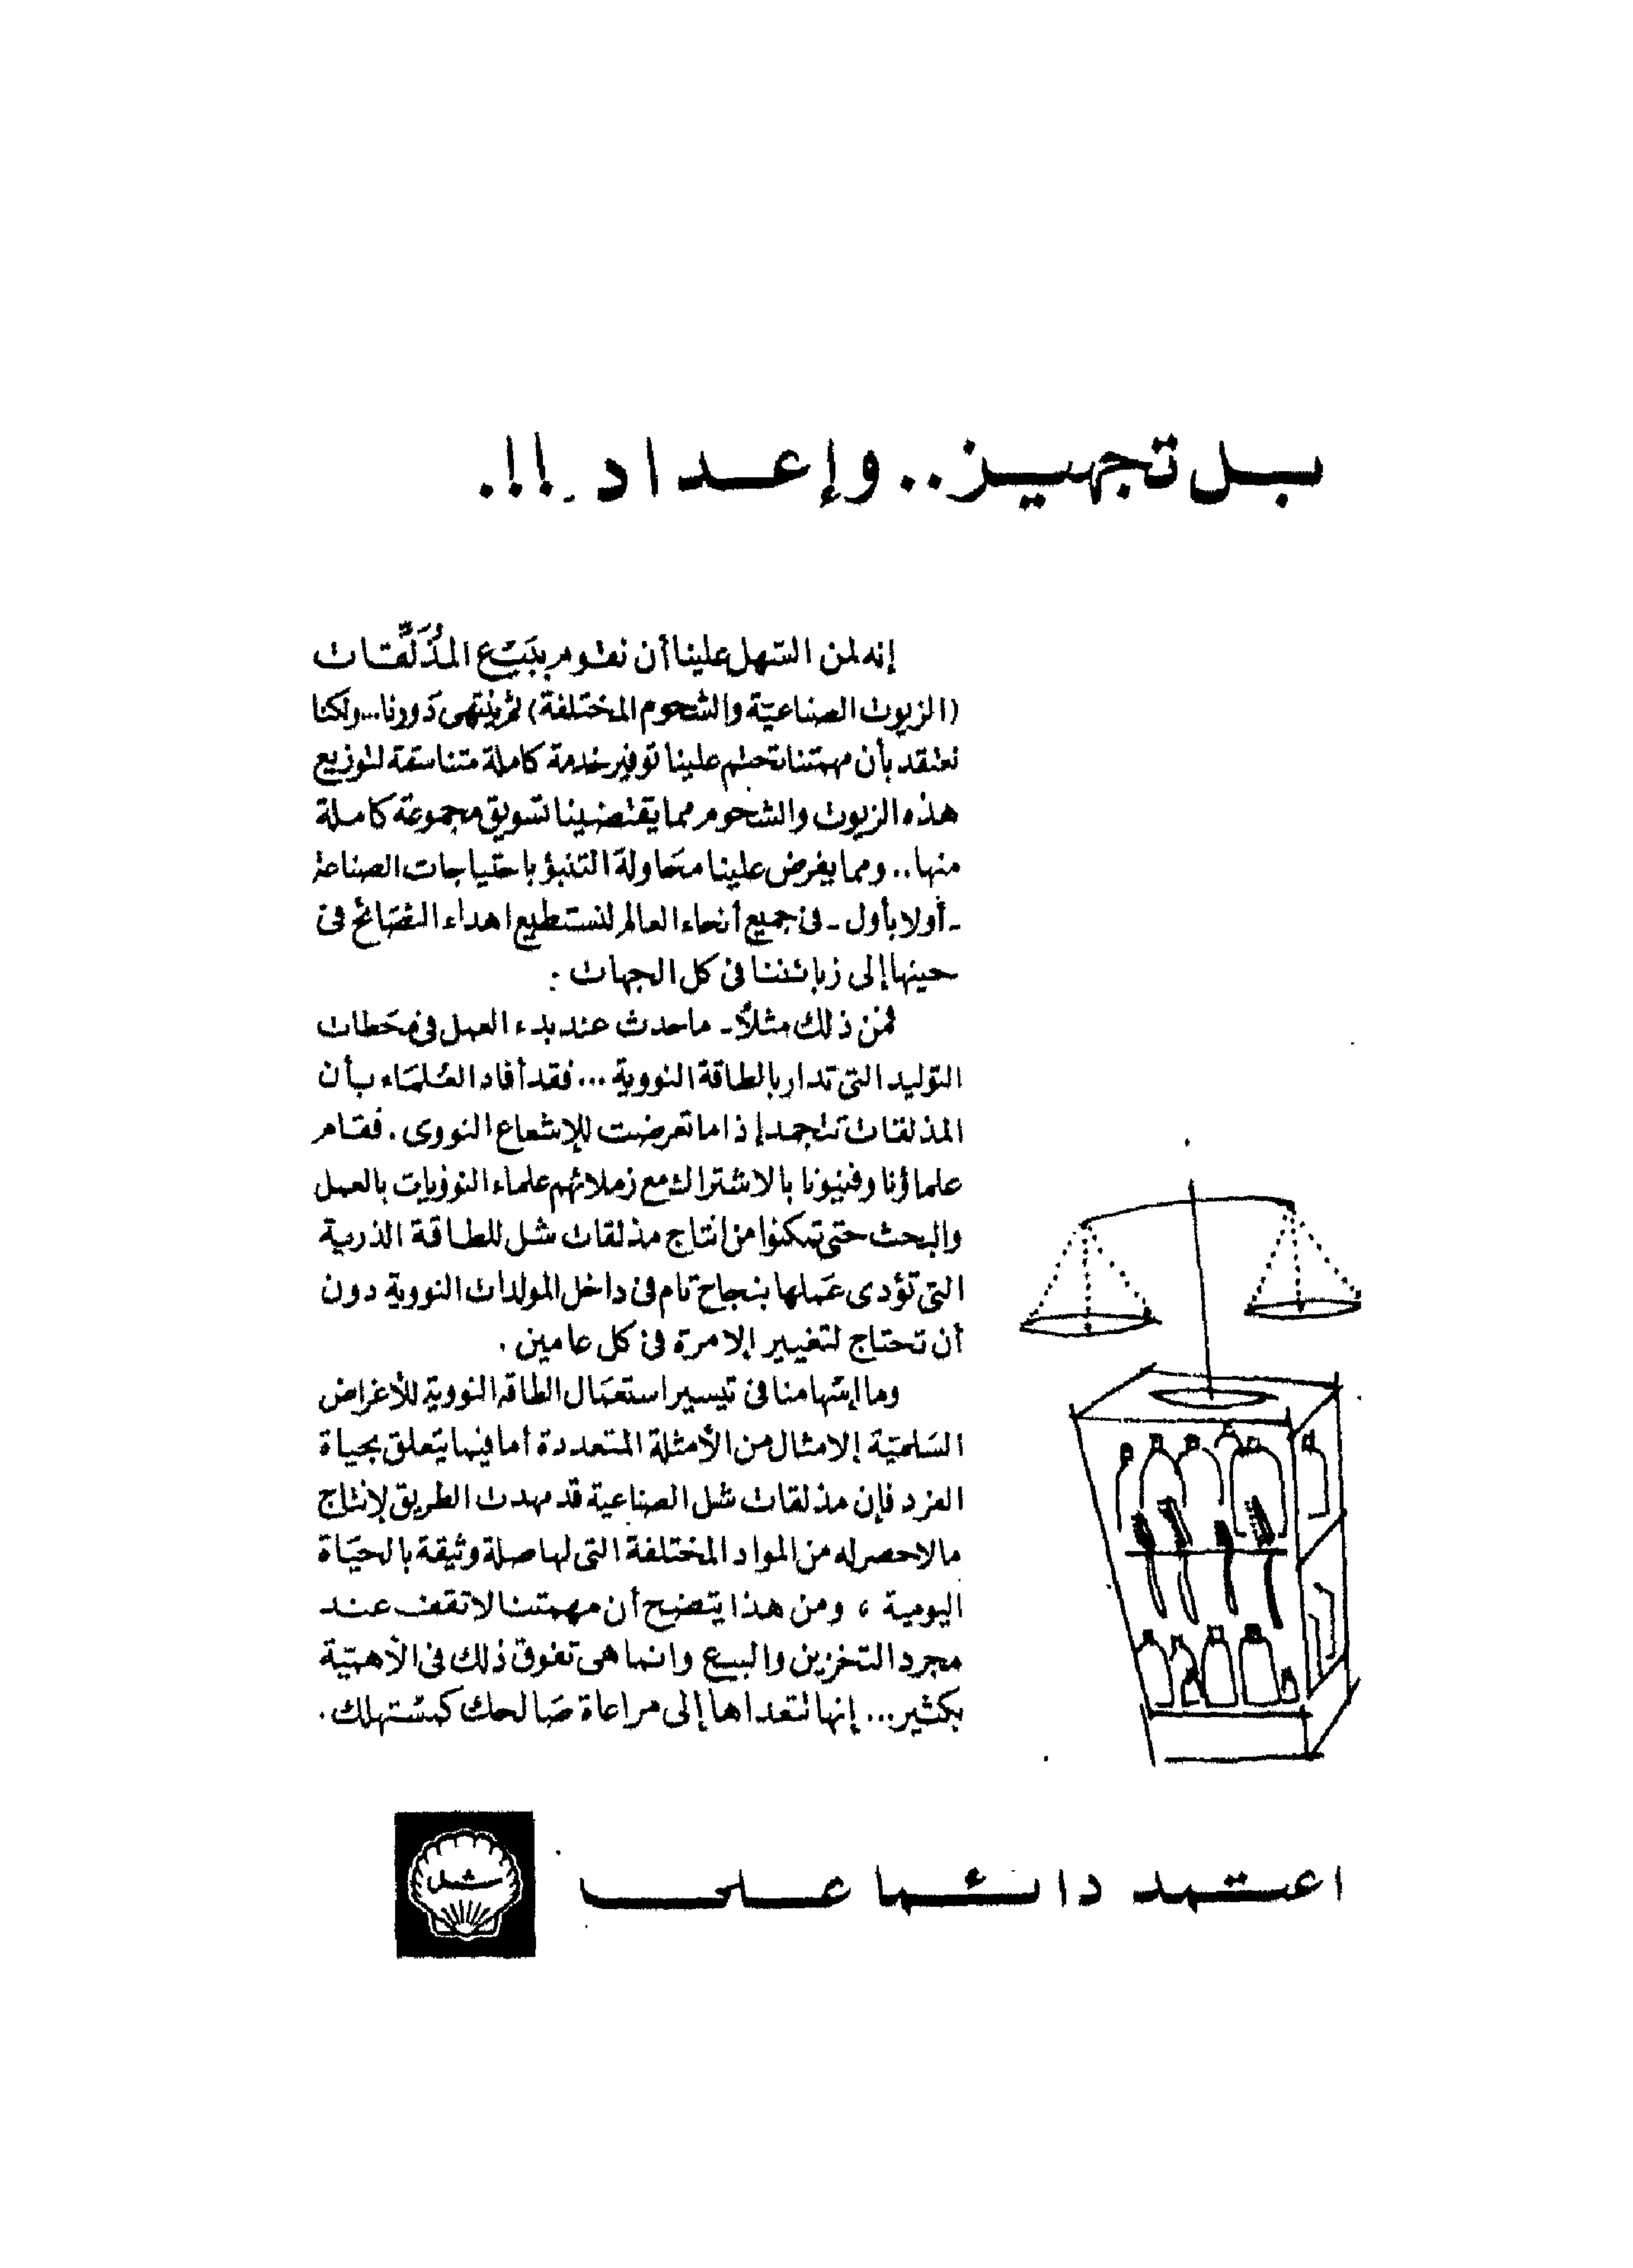 بل تجهيز.. وإعداد !!.
إنه لمن السهل علينا أن نقوم ببَيْع المذَلِّقات
(الزيوت الصناعيّة والشحوم المختلفة) ثم ينتهى دَورنا... ولكنا
نعتقد بأن مهمتنا تحتم علينا توفير خدمة كاملة متناسقة لتوزيع
هذه الزيوت والشحوم مما يقتضينا تسويق مجموعة كاملة
منها.. ومما يفرض علينا محَاولة التنبؤ باحتياجات الصناعة
- أولا بأول - فى جميع أنحاء العالم لنستطيع اهداء النصَائح فى
حينها إلى زبائننا فى كل الجهات :
فمن ذلك مثلاً - ماحدث عند بدء العمل فى محَطات
التوليد التى تدار بالطاقة النووية ... فقد أفاد العُلمَاء بأن
المذلقات تتجمد إذا ما تعرضت للإشعاع النووى . فقام
علماؤنا وفنيونا بالاشتراك مع زملائهم علماء النوويات بالعمل
والبحث حتى تمكنوا من انتاج مذلقات شل للطاقة الذرية
التى تؤدى عَملها بنجاح تام فى داخل المولدات النووية دون
أن تحتاج لتغيير إلا مرة فى كل عامين .
وما إسهامنا فى تيسير استعمَال الطاقة النووية للأغراض
السَلميّة إلا مثال من الأمثلة المتعددة أما فيما يتعلق بحياة
الفرد فإن مذلقات شل الصناعية قد مهدت الطريق لإنتاج
مالاحصر له من المواد المختلفة التى لها صلة وثيقة بالحيَاة
اليومية ، ومن هذا يتضح أن مهمتنا لا تقف عند
مجرد التخزين والبيع وانما هى تفوق ذلك فى الأهميّة
بكثير... إنها تتعداها إلى مراعاة صَالحك كمسُتهلك .
اعتمد دائما على
شل